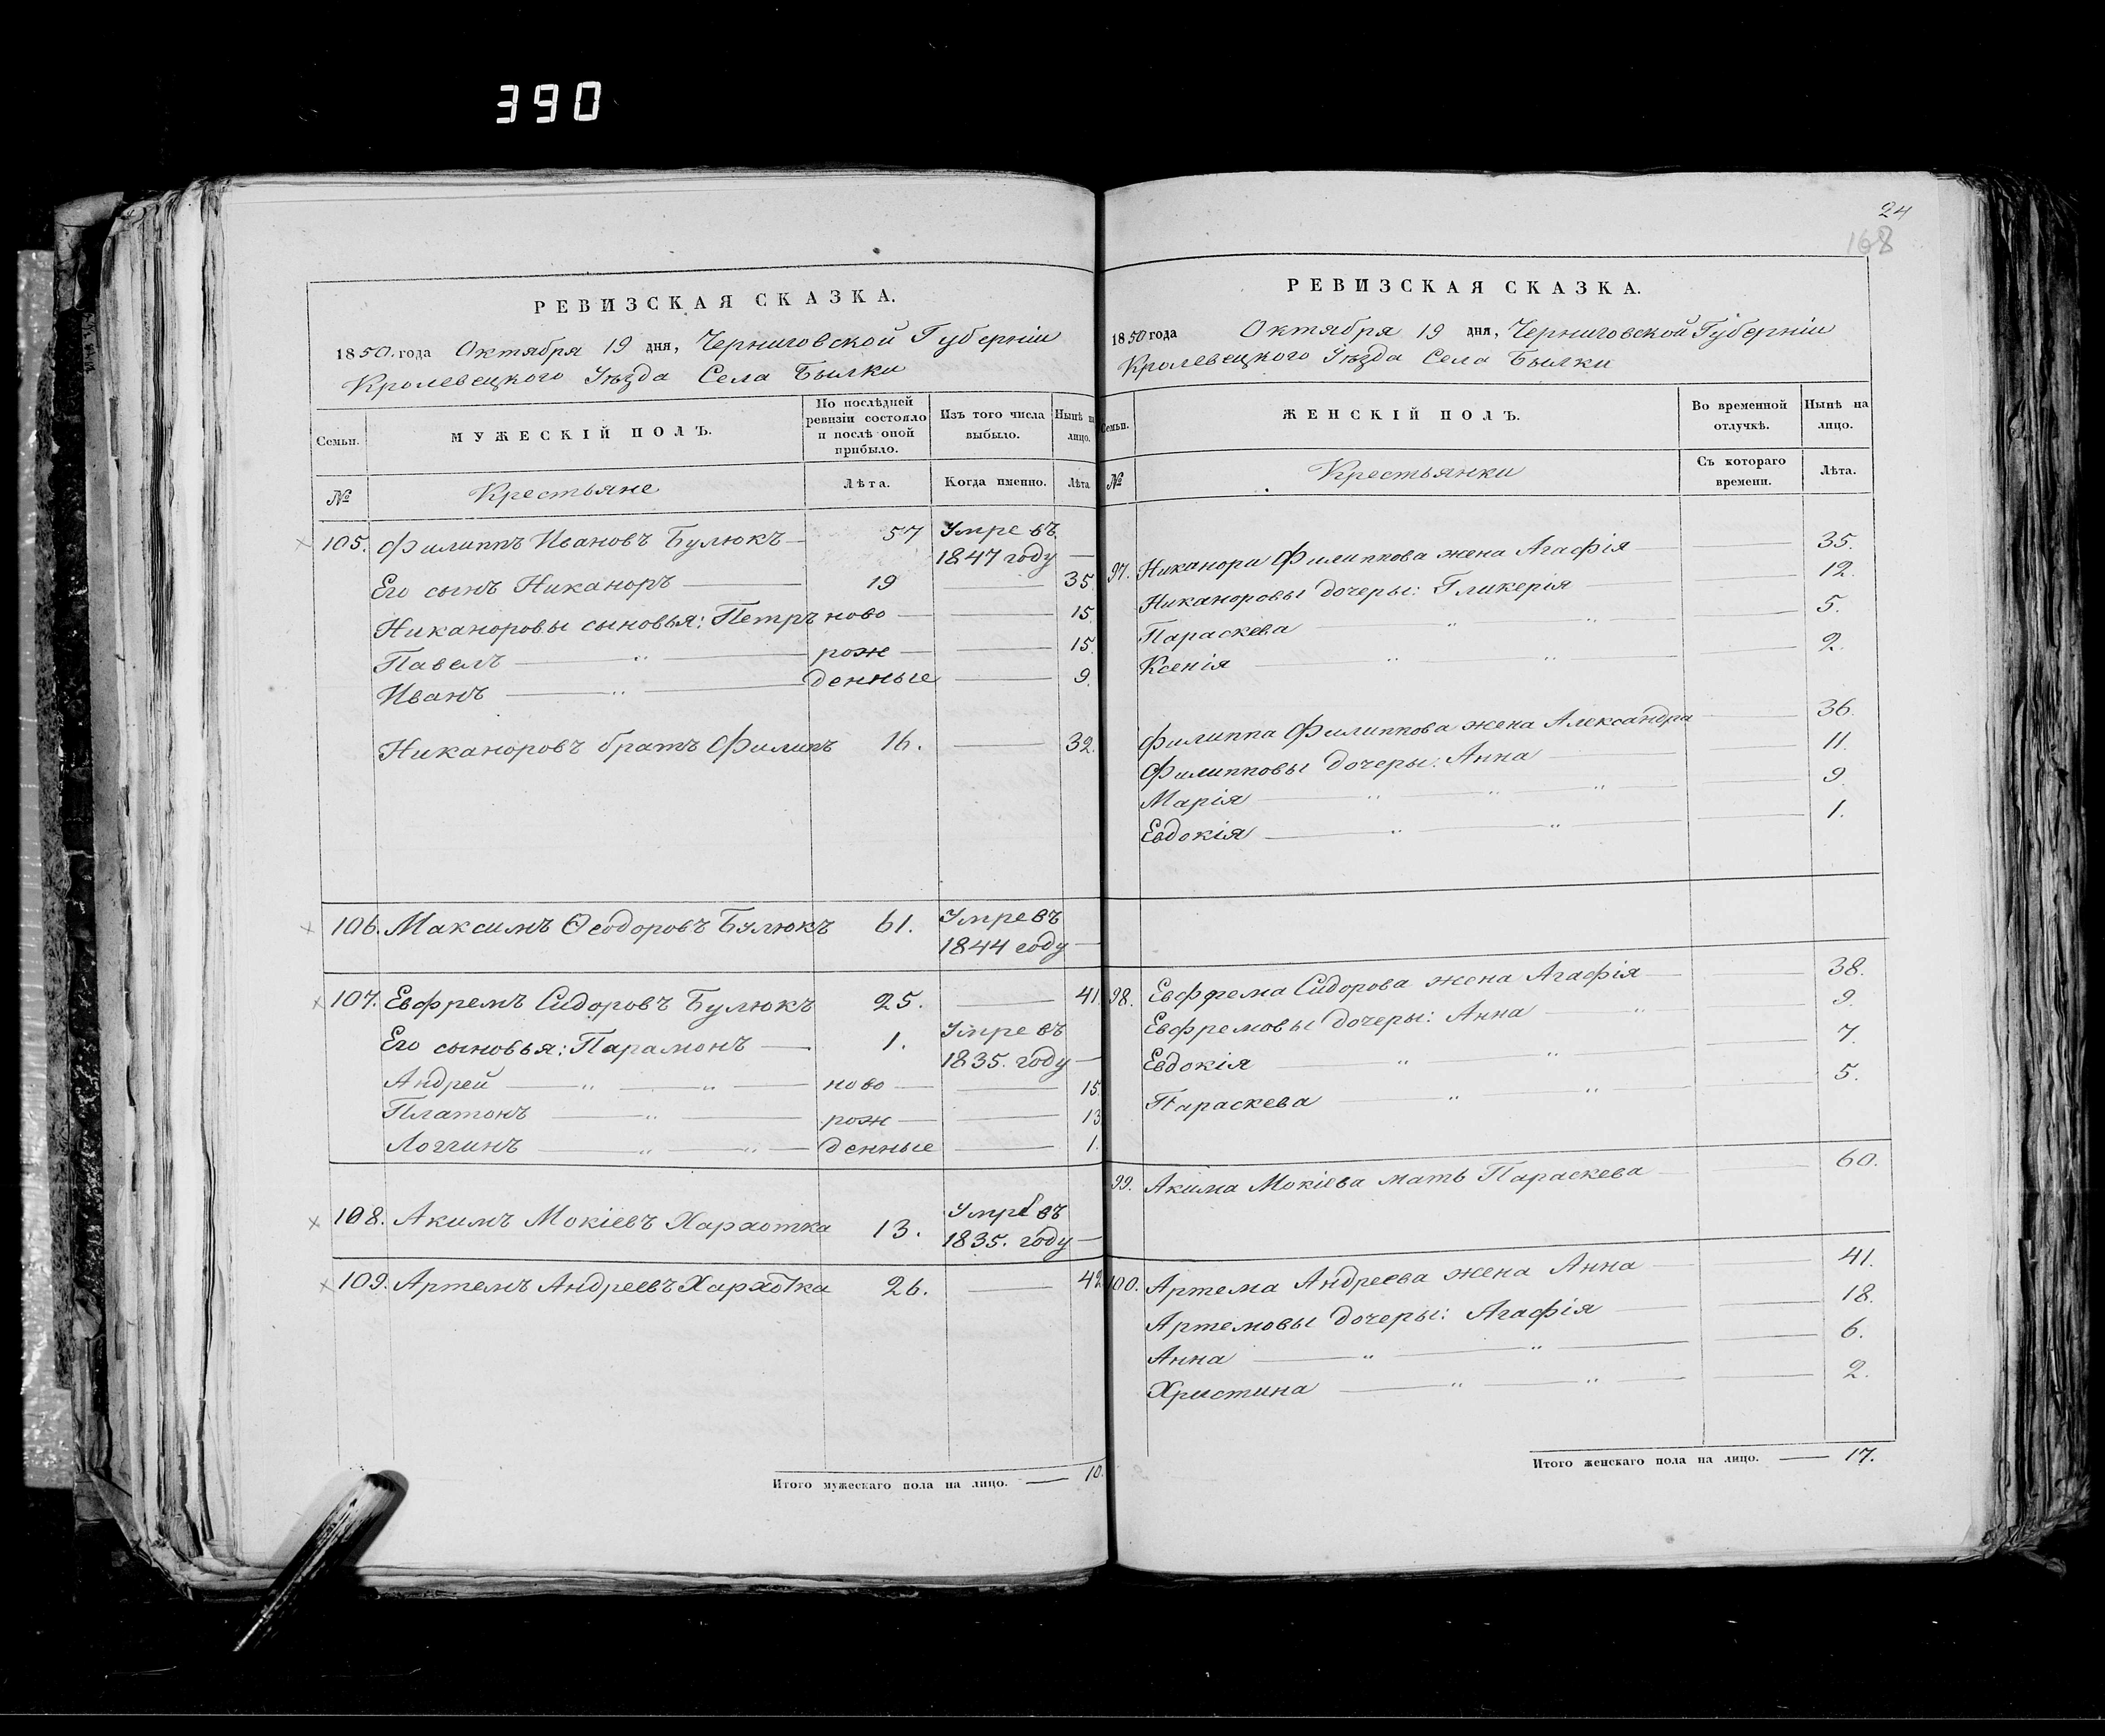 390
РЕВИЗСКАЯ СКАЗКА.
1850. года Октября 19 дня, Черниговской Губерніи
Кролевецкого Уѣзда Села Былки
Семьи.
МУЖЕСКІЙ ПОЛЪ.
По послѣдней
ревизіи состояло
и послѣ оной
прибыло.
Изъ того числа
выбыло.
Нынѣ на
лицо.
№
Крестьяне
Лѣта.
Когда именно.
Лѣта
105. Филиппъ Ивановъ Булюкъ 57 Умре въ
1847 году
Его сынъ Никаноръ 19 35
Никаноровы сыновья: Петръ ново 15
Павелъ " рож 15.
Иванъ " денные 9.
Никаноровъ братъ Филипъ 16. 32.
106. Максимъ Ѳеодоровъ Булюкъ 61. Умре въ
1844 году
107. Евфремъ Сидоровъ Булюкъ 25. 41
Его сыновья: Парамонъ 1. Умре въ
1835. году
Андрей " " ново 15
Платонъ " рож 13
Логгинъ " " денные 1.
108. Акимъ Мокіевъ Хархотка 13. Умре въ
1835. году
109. Артемъ Андреевъ Хархотка 26. 42
Итого мужескаго пола на лицо. 10.
24
168
РЕВИЗСКАЯ СКАЗКА.
1850 года Октября 19 дня, Черниговской Губерніи
Кролевецкого Уѣзда Села Былки
Семьи.
ЖЕНСКІЙ ПОЛЪ.
Во временной
отлучкѣ.
Нынѣ на
лицо.
№
Крестьянки
Съ котораго
времени.
Лѣта.
97. Никанора Филиппова жена Агафія 35.
Никаноровы дочеры: Гликерія 12.
Параскева " " 5.
Ксенія " " 2.
Филиппа Филиппова жена Александра 36.
Филипповы дочеры: Анна 11.
Марія " " " 9
Евдокія " " 1.
98. Евфрема Сидорова жена Агафія 38.
Евфремовы дочеры: Анна " 9.
Евдокія " " 7.
Параскева " " 5.
99. Акима Мокіева мать Параскева 60.
100. Артема Андреева жена Анна 41.
Артемовы дочеры: Агафія 18.
Анна " " 6.
Христина " " 2.
Итого женскаго пола на лицо. 17.